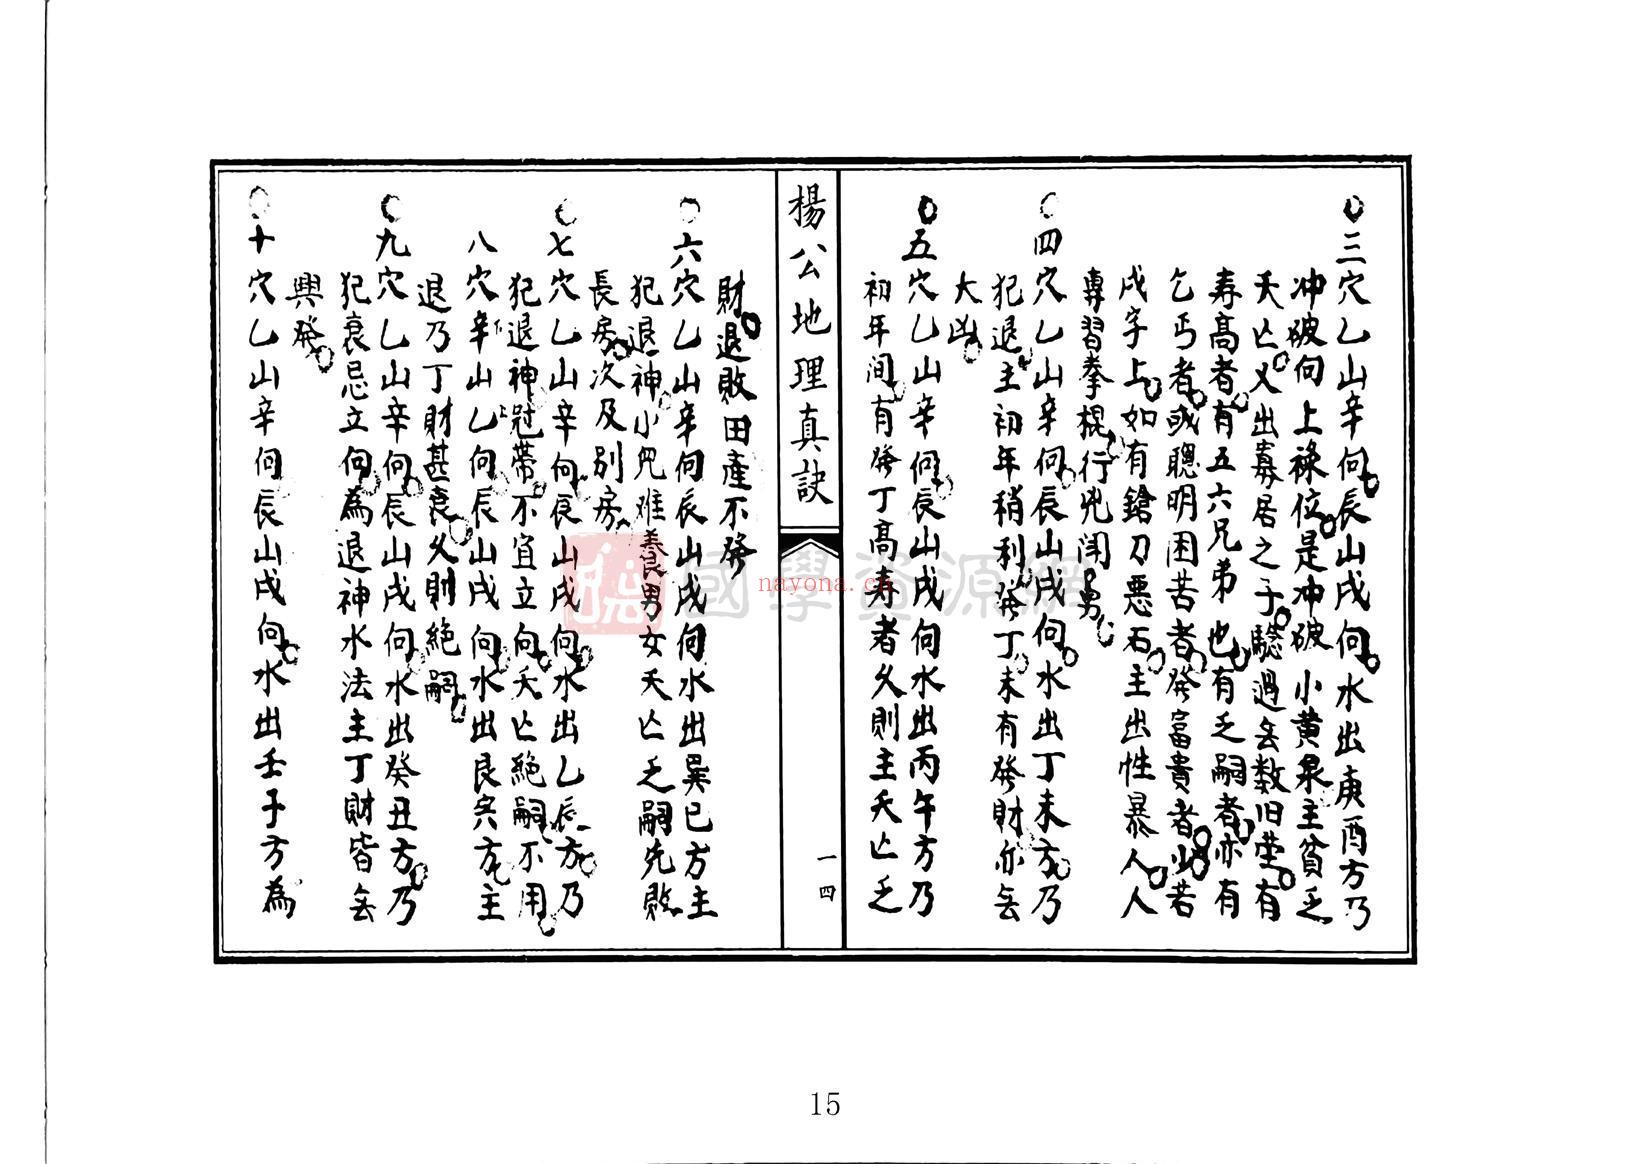 三穴乙山辛向辰山戌向水出庚酉方乃
冲破向上祿位是冲破小黄泉主貧乏
夭亡又出寡居之子驗過無数旧塋有
寿高者有五六兄弟也有乏嗣者亦有
乞丐者或聰明困苦者發富貴者少若
戌字上如有鎗刀惡石主出性暴人人
專習拳棍行兇閗勇
四穴乙山辛向辰山戌向水出丁未方乃
犯退主初年稍利發丁未有發財亦無
大凶
五穴乙山辛向辰山戌向水出丙午方乃
初年间有發丁高寿者久則主夭亡乏
楊公地理真訣
一四
財退敗田產不發
六穴乙山辛向辰山戌向水出巽巳方主
犯退神小兒难養男女夭亡乏嗣先敗
長房次及别房
七穴乙山辛向辰山戌向水出乙辰方乃
犯退神冠帶不宜立向夭亡絕嗣不用
八穴辛山乙向辰山戌向水出艮寅方主
退乃丁財甚衰久則絕嗣
九穴乙山辛向辰山戌向水出癸丑方乃
犯衰忌立向為退神水法主丁財皆無
興發
十穴乙山辛向辰山戌向水出壬子方為
國學資源網
nayona.cn
15